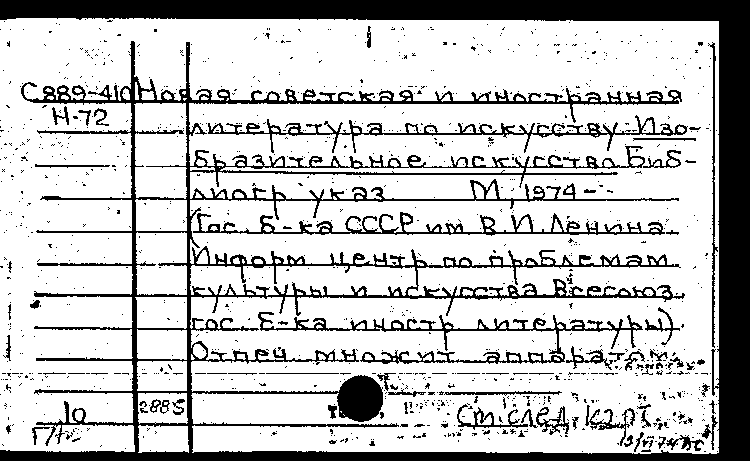 С889-410 Новая советская и иностранная
Н-72
литература по искусству. Изо-
бразительное искусство. Биб-
лиогр указ М., 1974 -
(Гос. б-ка СССР им В.И. Ленина
Информ центр по проблемам
культуры и искусства Всесоюз.
гос. б-ка иностр литературы)
Отпеч множит аппаратом.
10 2885 См. след. карт.